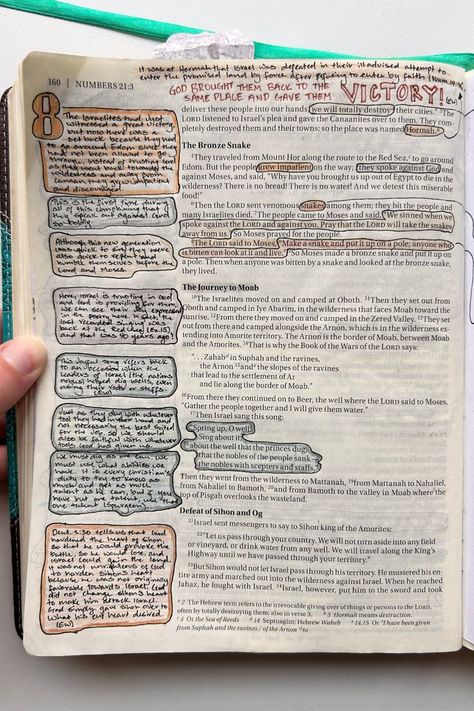 It was at Hormah that Israel was defeated in their illadvised attempt to
enter the promised land by force after refusing to enter by faith (Num. 14)
GOD BROUGHT THEM BACK TO THE
SAME PLACE AND GAVE THEM VICTORY! (EW)
160 | NUMBERS 21:3
8
The Israelites had just
witnessed a great victory
but now there was a
set back because they had
to go around Edom since they
had not been allowed to go
through. Instead of trusting
as they went back through the
wilderness and away from
Canaan they got impatient
and discouraged.
This is the first time during
all of this complaining that
they speak out against God
so boldly.
Although this new generation
was quick to sin they were
also quick to repent and
humble themselves before the
Lord and Moses.
Here, Israel is trusting in God
and God is providing for them.
We can see their joy expressed
in the poem here. In fact, the
last recorded singing was
back at the Red Sea (Ex 15)
and that was 40 years ago!
This joyful song refers back
to an occasion when the
leaders of Israel (the nations
nobles) helped dig wells, even
using their rods or staffs.
(EW)
Just as they dug with whatever
tool they had in their hand and
not necessarily the best suited
for the job, so we should
also be faithful with whatever
tools God has given us.
We must dig as we can. We
must use what abilities we
have. It is every christian's
duty to try to know as
much and get as much
talent as he can, but if you
have but one talent use that
one talent (Spurgeon)
Deut. 2:30 tells us that God
hardened the heart of Sihon
so that he would provoke the
battle, so he would lose and
Israel could gain the land. It
was not unrighteous of God
to harden Sihon's heart
because he was not originally
favorable toward Israel. God
did not change Sihon's heart
to make him attack Israel.
God simply gave Sihon over to
what his evil heart desired.
(EW)
deliver these people into our hands, we will totally destroy their cities." ³The
LORD listened to Israel's plea and gave the Canaanites over to them. They com-
pletely destroyed them and their towns; so the place was named Hormah.
The Bronze Snake
⁴They traveled from Mount Hor along the route to the Red Sea, to go around
Edom. But the people grew impatient on the way; ⁵they spoke against God
and against Moses, and said, "Why have you brought us up out of Egypt to die in the
wilderness? There is no bread! There is no water! And we detest this miserable
food!"
⁶Then the LORD sent venomous snakes among them; they bit the people and
many Israelites died. ⁷The people came to Moses and said, "We sinned when we
spoke against the LORD and against you. Pray that the LORD will take the snakes
away from us." So Moses prayed for the people.
⁸The LORD said to Moses, "Make a snake and put it up on a pole; anyone who
is bitten can look at it and live." ⁹So Moses made a bronze snake and put it up on
a pole. Then when anyone was bitten by a snake and looked at the bronze snake,
they lived.
The Journey to Moab
¹⁰The Israelites moved on and camped at Oboth. ¹¹Then they set out from
Oboth and camped in Iye Abarim, in the wilderness that faces Moab toward the
sunrise. ¹²From there they moved on and camped in the Zered Valley. ¹³They set
out from there and camped alongside the Arnon, which is in the wilderness ex-
tending into Amorite territory. The Arnon is the border of Moab, between Moab
and the Amorites. ¹⁴That is why the Book of the Wars of the LORD says:
". . . Zahab in Suphah and the ravines,
the Arnon ¹⁵and the slopes of the ravines
that lead to the settlement of Ar
and lie along the border of Moab."
¹⁶From there they continued on to Beer, the well where the LORD said to Moses,
"Gather the people together and I will give them water."
¹⁷Then Israel sang this song:
"Spring up, O well!
Sing about it,
¹⁸about the well that the princes dug,
that the nobles of the people sank—
the nobles with scepters and staffs."
Then they went from the wilderness to Mattanah, ¹⁹from Mattanah to Nahaliel,
from Nahaliel to Bamoth, ²⁰and from Bamoth to the valley in Moab where the
top of Pisgah overlooks the wasteland.
Defeat of Sihon and Og
²¹Israel sent messengers to say to Sihon king of the Amorites:
²²"Let us pass through your country. We will not turn aside into any field
or vineyard, or drink water from any well. We will travel along the King's
Highway until we have passed through your territory."
²³But Sihon would not let Israel pass through his territory. He mustered his en-
tire army and marched out into the wilderness against Israel. When he reached
Jahaz, he fought with Israel. ²⁴Israel, however, put him to the sword and took
2 The Hebrew term refers to the irrevocable giving over of things or persons to the LORD,
often by totally destroying them; also in verse 3. 3 Hormah means destruction.
4 Or the Sea of Reeds 14 Septuagint; Hebrew Waheb 14,15 Or "I have been given
from Suphah and the ravines / of the Arnon ¹⁵to